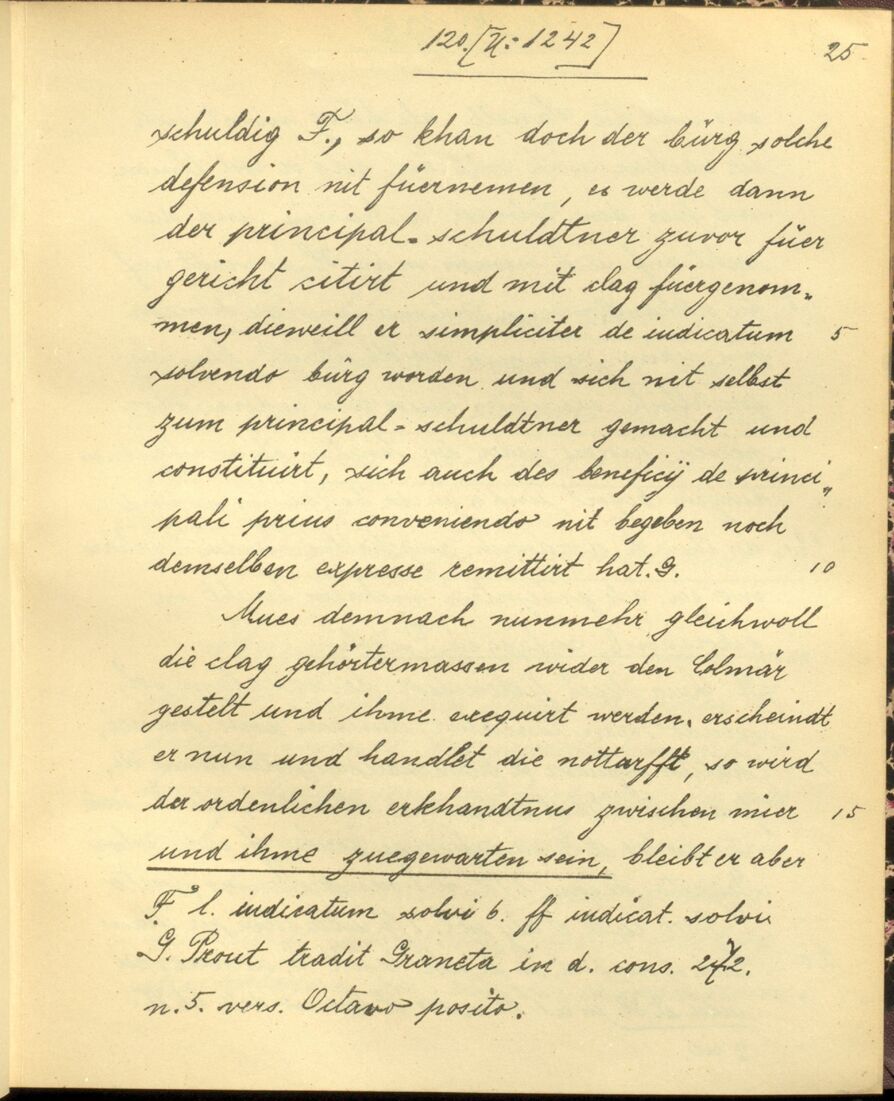 120. [U: 1242]
25
schuldig F., so khan doch der bürg solche
defension nit füernemen, es werde dann
der principal-schuldtner zuvor füer
gericht citirt und mit clag füergenom-
men, dieweill er simpliciter de iudicatum 5
solvendo bürg worden und sich nit selbst
zum principal-schuldtner gemacht und
constituirt, sich auch des beneficij de princi-
pali prius conveniendo nit begeben noch
demselben expresse remittirt hat. G. 10
Mues demnach nunmehr gleichwoll
die clag gehörtermassen wider den Colmär
gestelt und ihme exequirt werden. erscheindt
er nun und handlet die notturfft, so wird
der ordenlichen erkhandtnus zwischen mier 15
und ihme zuegewarten sein, bleibt er aber
F l. iudicatum solvi 6. ff iudicat. solvi
G. Prout tradit Graneta in d. cons. 272.
n. 5. vers. Octavo posito.